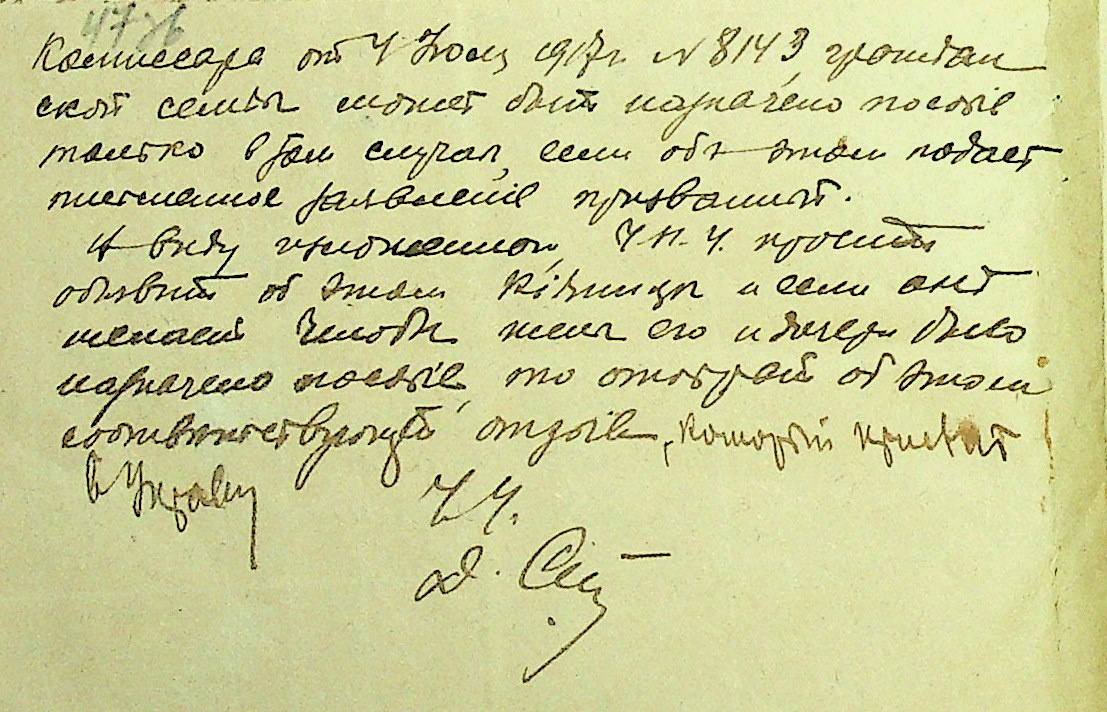 47 об
Комиссара от 4 Июля 1917 г. N 8143 граждан
ской семьи может быть назначено пособіе
только в том случаи, если объ этом подает
письменное заявленіе призванный.
В виду изложеннаго, У.Н.У. просит
объявить об этом и если онъ
желает чтобы жене его и дочери было
назначено пособіе, то отобрать об этом
соответствующій отзывъ, который прислать
в Управу
Ч. У.